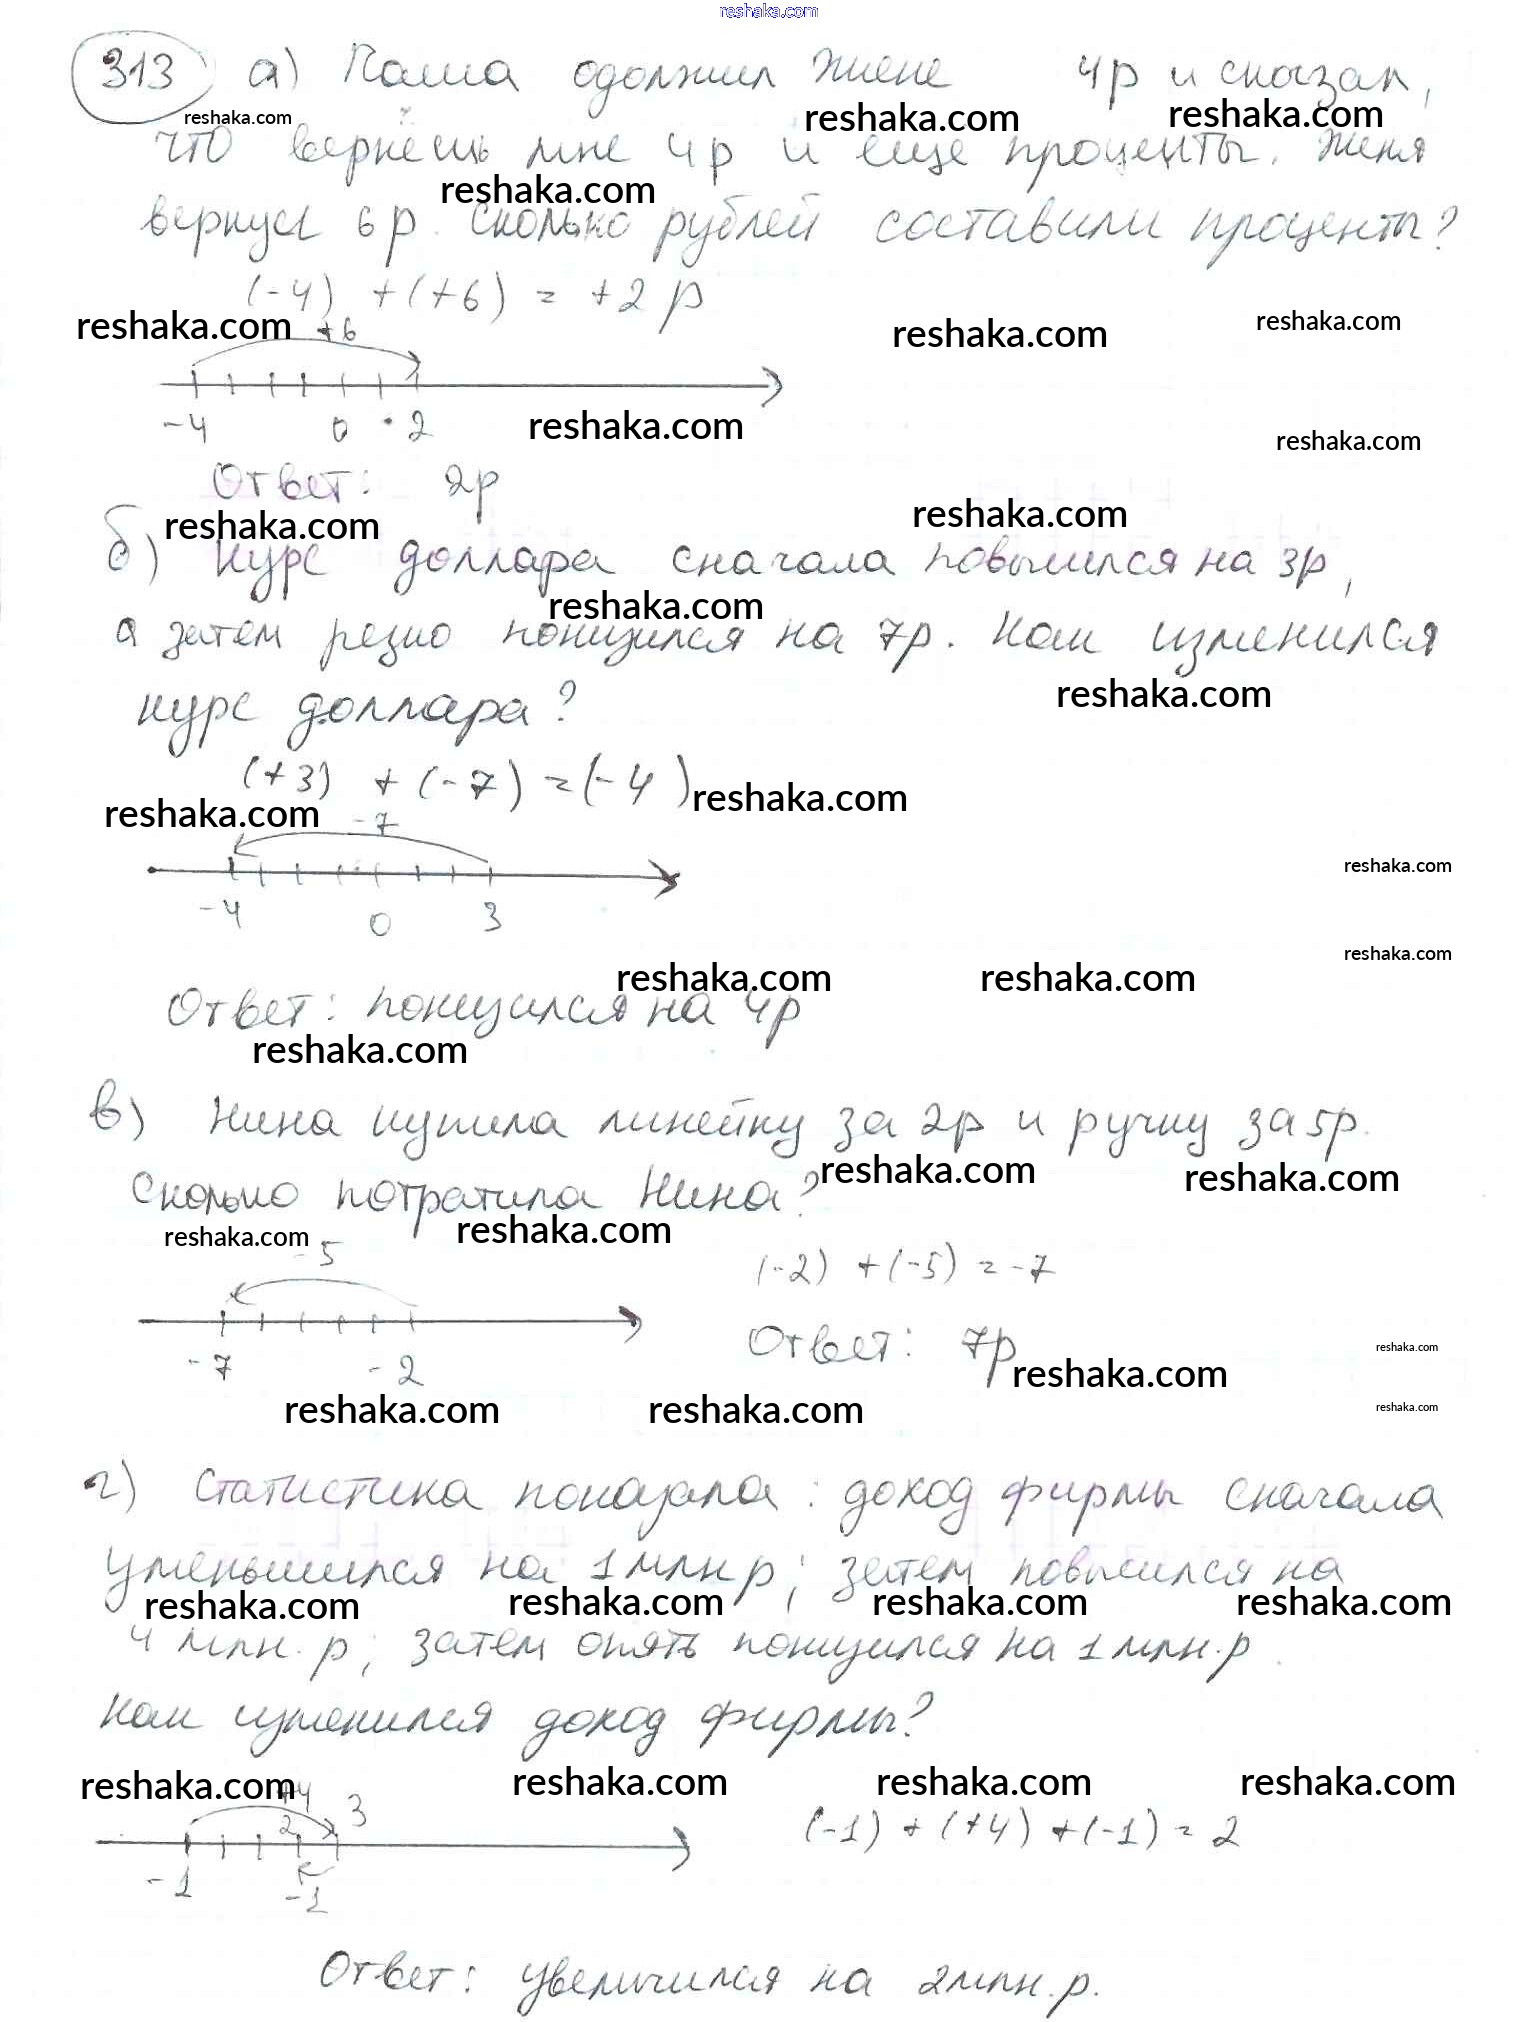 reshaka.com
313 а) Паша одолжил Жене 4р и сказал,
reshaka.com reshaka.com reshaka.com
что вернёшь мне 4р и ещё проценты. Женя
reshaka.com
вернул 6р. Сколько рублей составили проценты?
(-4) + (+6) = +2 р
reshaka.com +6 reshaka.com reshaka.com
-4 0 2 reshaka.com
reshaka.com
Ответ: 2р
reshaka.com reshaka.com
б) Курс доллара сначала повысился на 3р,
reshaka.com
а затем резко понизился на 7р. Как изменился
reshaka.com
курс доллара?
(+3) + (-7) = (-4) reshaka.com
reshaka.com -7
reshaka.com
-4 0 3
reshaka.com
reshaka.com reshaka.com
Ответ: понизился на 4р
reshaka.com
в) Нина купила линейку за 2р и ручку за 5р.
reshaka.com reshaka.com
Сколько потратила Нина?
reshaka.com reshaka.com
-5 (-2) + (-5) = -7
Ответ: 7р
-7 -2 reshaka.com reshaka.com
reshaka.com reshaka.com reshaka.com
г) Статистика показала: доход фирмы сначала
уменьшился на 1 млн р; затем повысился на
reshaka.com reshaka.com reshaka.com reshaka.com
4 млн. р; затем опять понизился на 1 млн. р.
Как изменился доход фирмы?
reshaka.com reshaka.com reshaka.com reshaka.com
+4 3
2 (-1) + (+4) + (-1) = 2
-1 -1
Ответ: увеличился на 2 млн. р.